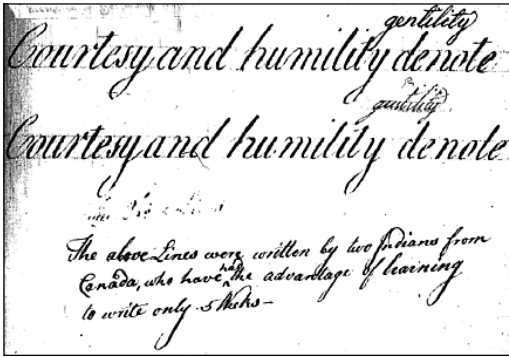 gentility
Courtesy and humility denote
gentility
Courtesy and humility denote
The above Lines were written by two Indians from
Canada, who have had the advantage of learning
to write only 5 Weeks -